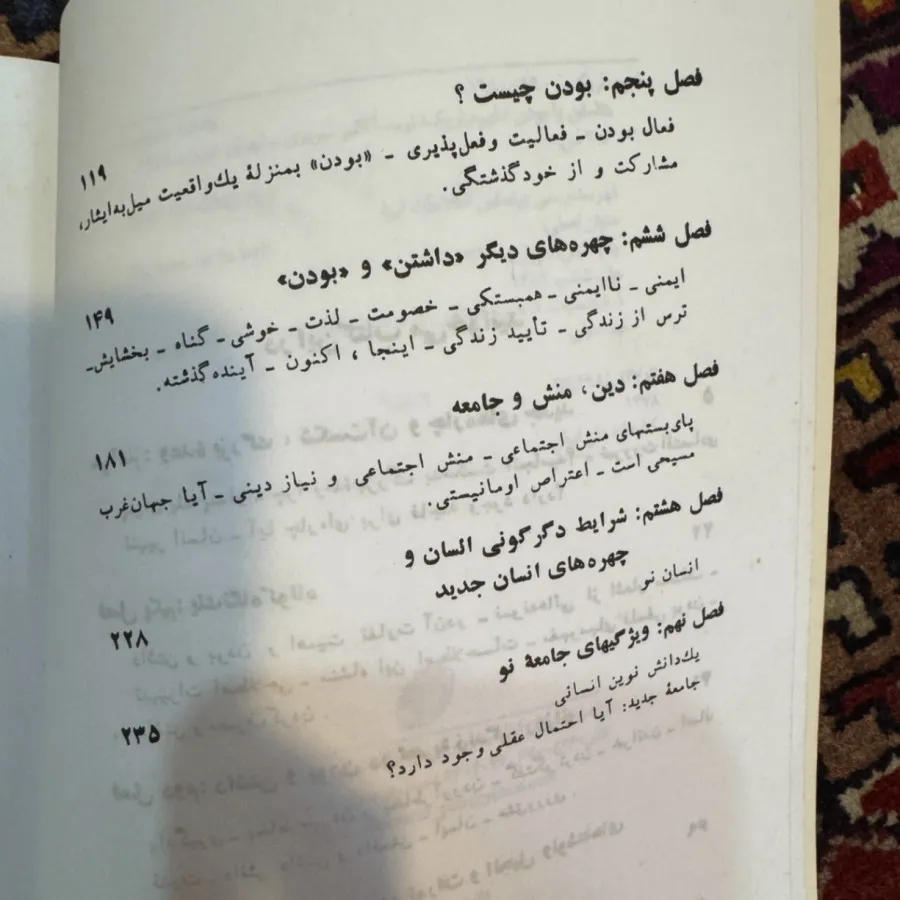 فصل پنجم: بودن چیست؟
فعال بودن ـ فعالیت وفعل‌پذیری ـ «بودن» بمنزلهٔ یك‌واقعیت میل‌به‌ایثار، ۱۱۹
مشارکت و از خودگذشتگی.
فصل ششم: چهره‌های دیگر «داشتن» و «بودن»
ایمنی ـ ناایمنی ـ همبستکی ـ خصومت ـ لذت ـ خوشی ـ گناه ـ بخشایش ـ ۱۴۹
ترس از زندگی ـ تأیید زندگی ـ اینجا، اکنون ـ آینده گذشته.
فصل هفتم: دین، منش و جامعه
پای‌بستهای منش اجتماعی ـ منش اجتماعی و نیاز دینی ـ آیا جهان‌غرب ۱۸۱
مسیحی است ـ اعتراض اومانیستی.
فصل هشتم: شرایط دگرگونی السان و
چهره‌های انسان جدید
انسان نو ۲۲۸
فصل نهم: ویژگیهای جامعهٔ نو
یك‌دانش نوین انسانی
جامعهٔ جدید: آیا احتمال عقلی وجود دارد؟ ۲۳۵